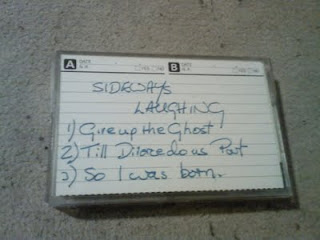 A DATE
B DATE
SIDEWAYS
LAUGHING
1) Give up the Ghost
2) Till Divorce do us Part
3) So I was born.